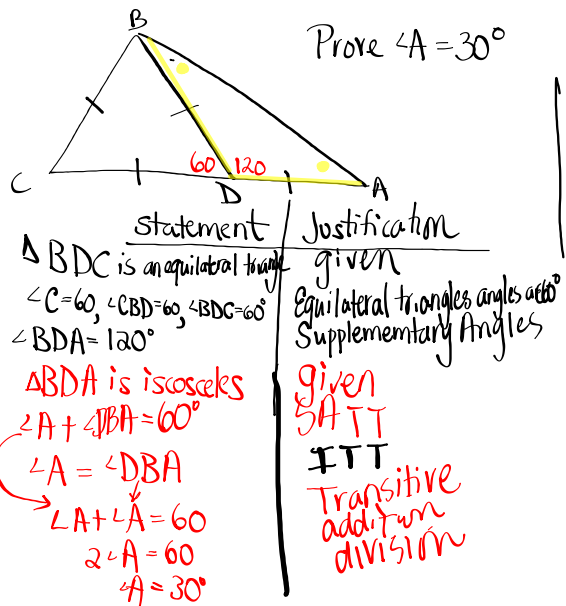 B
Prove ∠A = 30°
60 120
C D A
Statement Justification
Δ BDC is an equilateral triangle given
∠C=60, ∠CBD=60, ∠BDC=60° Equilateral triangles angles are 60°
∠BDA = 120° Supplementary Angles
ΔBDA is iscosceles given
∠A + ∠DBA = 60° SATT
∠A = ∠DBA ITT
∠A + ∠A = 60 Transitive
2∠A = 60 addition
∠A = 30° division